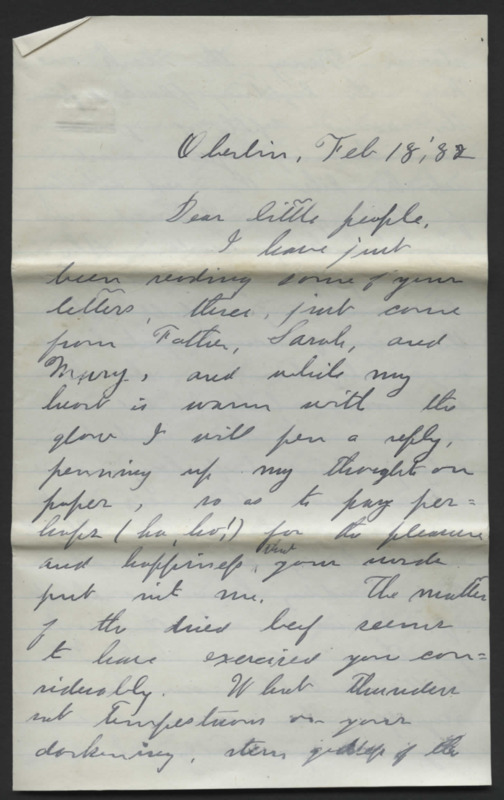 Oberlin, Feb 18, '82
Dear little people,
I have just
been reading some of your
letters, three, just come
from Father, Sarah, and
Mary, and while my
heart is warm with the
glow I will pen a reply,
penning up my thoughts on
paper, so as to pay per=
haps (ha, ha!) for the pleasure
and happiness that your words
put int me. The matter
of the dried beef seems
to have exercised you con=
siderably. What thunders
not tempestuous on your
darkening, stern of the